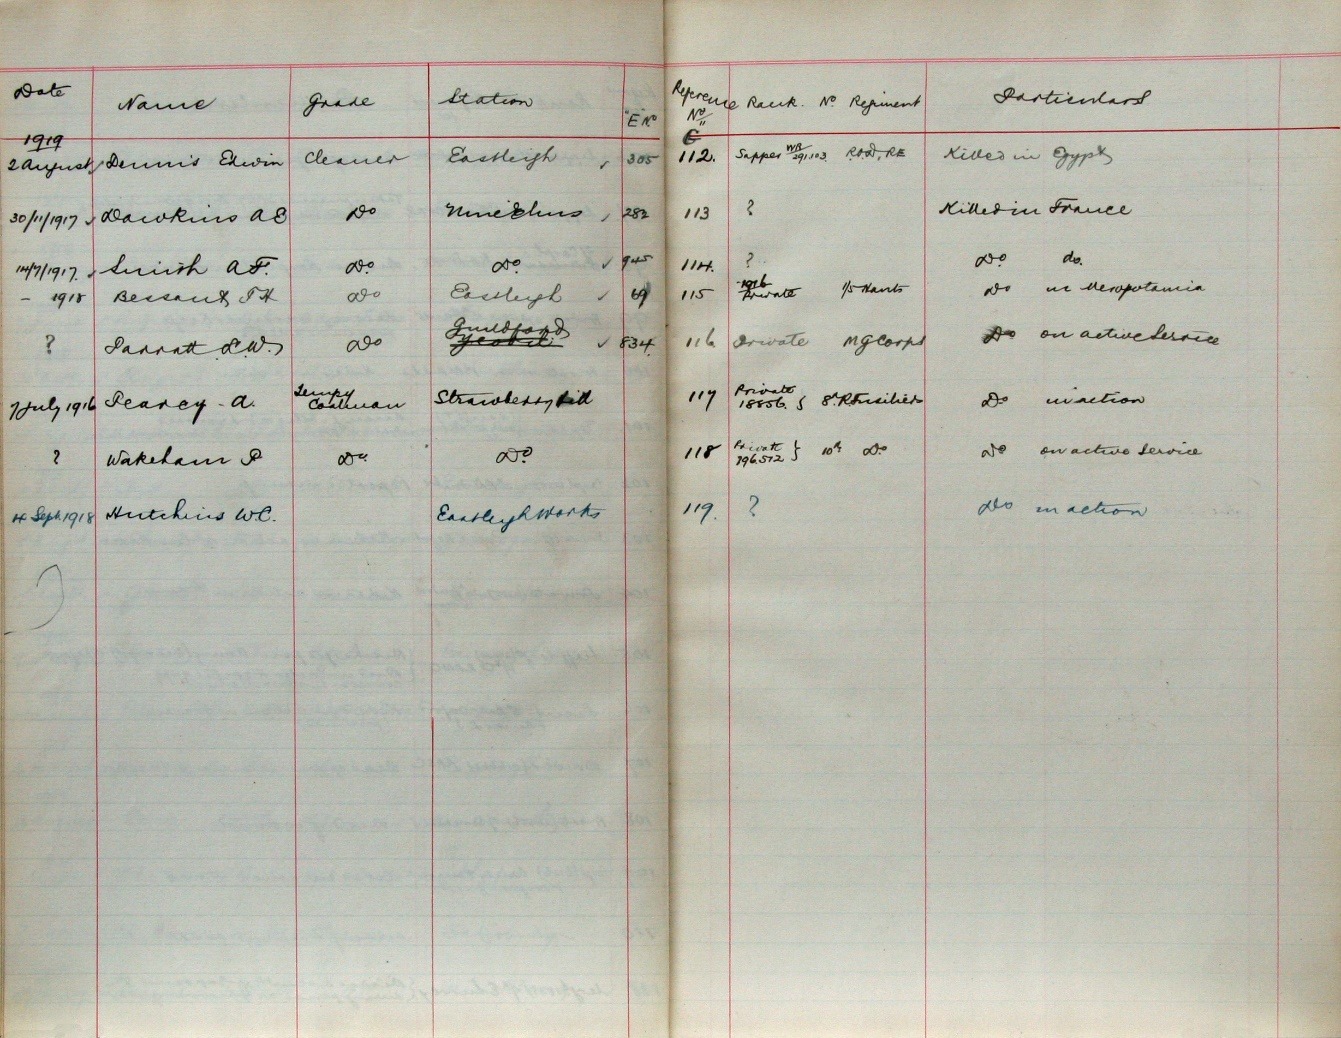 Date Name Grade Station "E No Reference No Rank. No. Regiment Particulars
1919 C
2 August Dennis Edwin Cleaner Eastleigh 305 112. Sapper WR/291103 R.O.D, RE Killed in Egypt
30/11/1917 Dawkins A E Do Nine Elms 282 113 ? Killed in France
14/7/1917. Smith A.F. Do. Do. 945 114. ? Do do.
- 1918 Bessant Do Eastleigh 69 115 1916 Private 1/5 Hants Do in Mesopotamia
? Parratt L.W. Do Guildford Yeovil 834 116 Private M G Corps Do on active Service
7 July 1916 Pearcy - A. Tempy Coalman Strawberry Hill 117 Private 18856. } 8th R Fusiliers Do in action
? Wakeham P Do. Do. 118 Private } 10th Do Do on active Service
4 Sept. 1918 Hutchins W.C. Eastleigh Works 119. ? Do in action